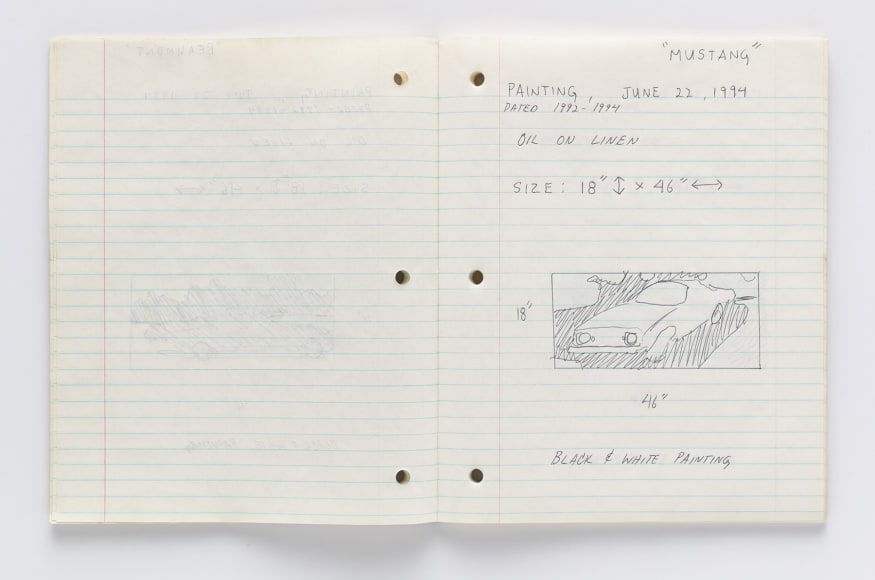 "MUSTANG"
PAINTING, JUNE 22, 1994
DATED 1992-1994
OIL ON LINEN
SIZE: 18" ↕ × 46" ↔
18"
46"
BLACK & WHITE PAINTING